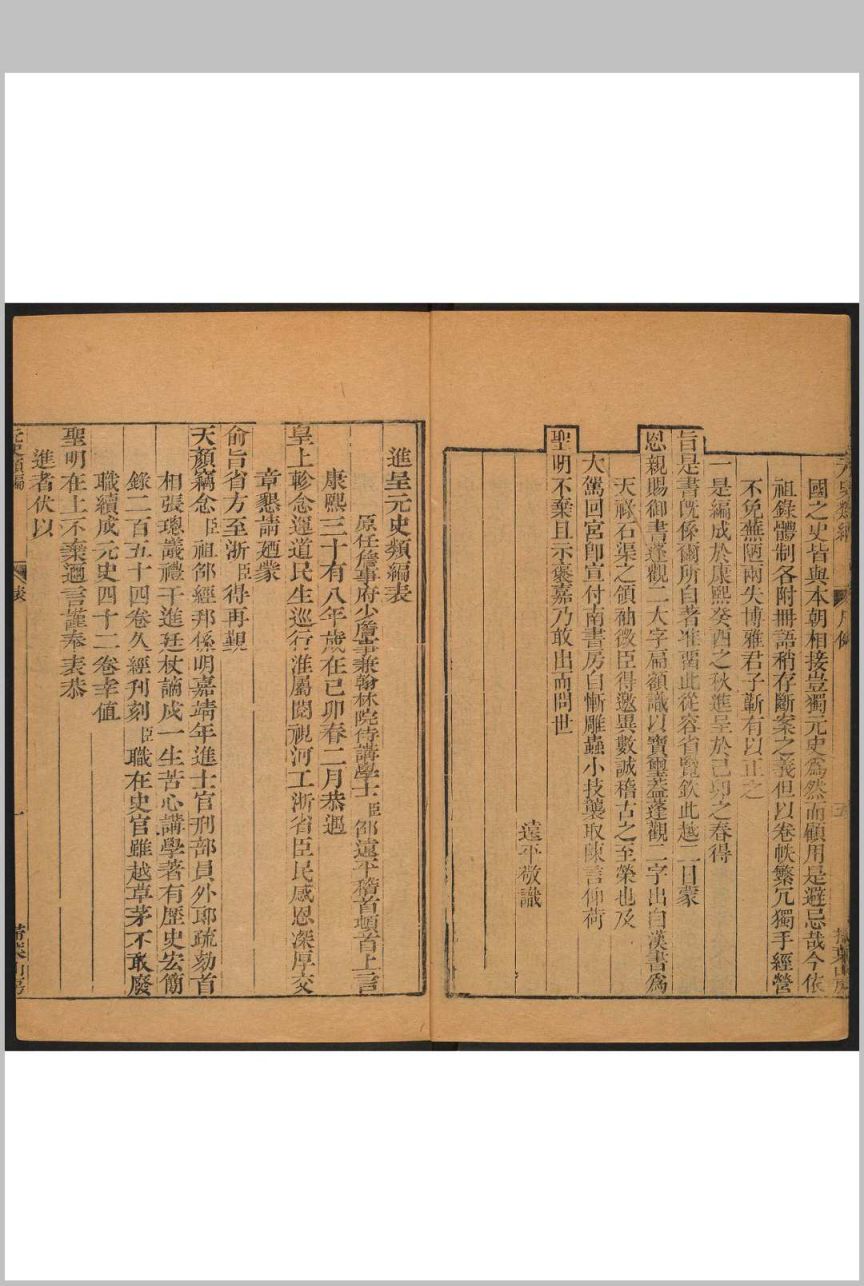 國之史皆與本朝相接豈獨元史爲然而顧用是避忌哉今依
祖錄體制各附冊語稍存斷案之義但以卷帙繁冗獨手經營
不免蕪陋兩失博雅君子蘄有以正之
一是編成於康熙癸酉之秋進呈於己卯之春得
旨是書既係爾所自著准畱此從容省覽欽此越二日蒙
恩親賜御書蓬觀二大字扁額識以寶璽蓋蓬觀二字出自漢書爲
天祿石渠之領袖微臣得邀異數誠稽古之至榮也及
大駕回宮卽宣付南書房自慚雕蟲小技襲取陳言仰荷
聖明不棄且示褒嘉乃敢出而問世
遠平敬識
進呈元史類編表
原任詹事府少詹事兼翰林院侍講學士臣邵遠平稽首頓首上言
康熙三十有八年歲在己卯春二月恭遇
皇上軫念運道民生巡行淮屬閱視河工浙省臣民感恩深厚交
章懇請廼蒙
俞旨省方至浙臣得再覲
天顏竊念臣祖邵經邦係明嘉靖年進士官刑部員外郎疏劾首
相張璁議禮干進廷杖謫戍一生苦心講學著有歷史宏簡
錄二百五十四卷久經刊刻臣職在史官雖越草茅不敢廢
職續成元史四十二卷幸值
聖明在上不棄邇言謹奉表恭
進者伏以
元史類編
表
一